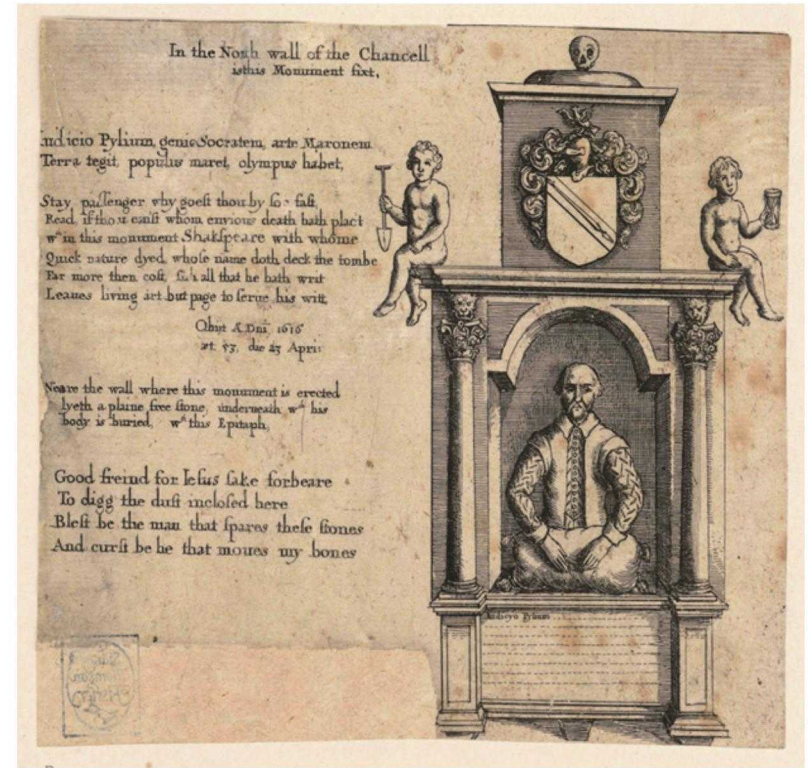 In the North wall of the Chancell
is this Monument fixt.
Iudicio Pylium, genio Socratem, arte Maronem
Terra tegit, populus mæret, olympus habet,
Stay passenger why goest thou by soe fast,
Read, if thou canst whom envious death hath plact
wth in this monument Shakspeare with whome
Quick nature dyed, whose name doth deck the tombe
Far more then cost, sith all that he hath writ
Leaues living art but page to serue his witt,
Obijt A Dni 1616
æt. 53, die 23 Apri:
Neare the wall where this monument is erected
lyeth a plaine free stone, underneath wch his
body is buried, wth this Epitaph,
Good freind for Iesus sake forbeare
To digg the dust inclosed here
Blest be the man that spares these stones
And curst be he that moues my bones
Iudicyo Pylium